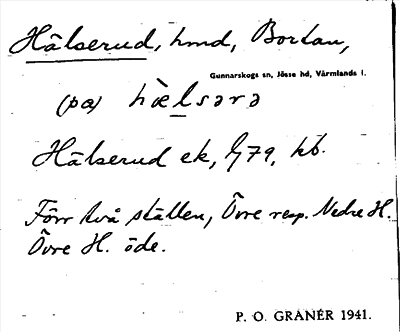 Hälserud, hmd, Bortan,
Gunnarskogs sn, Jösse hd, Värmlands l.
(pa) hæ̀lsərə
Hälserud ek, 1/79, kb.
Förr två ställen, Övre resp. Nedre H.
Övre H. öde.
P. O. GRANÉR 1941.